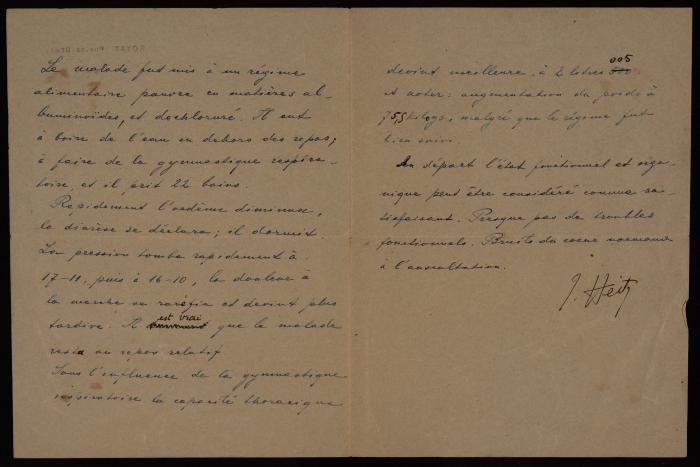 Le malade fut mis à un régime
alimentaire pauvre en matières al-
buminoïdes, et déchloruré. Il eut
à boire de l'eau en dehors des repas;
à faire de la gymnastique respira-
toire, et il prit 22 bains.
Rapidement l'œdème diminua,
la diurèse se déclara; il dormit.
La pression tomba rapidement à
17-11, puis à 16-10, la douleur à
la marche se raréfia et devint plus
tardive. Il est vrai que le malade
resta au repos relatif
Sous l'influence de la gymnastique
inspiratoire la capacité thoracique
devint meilleure, à 2 litres 005
à noter: augmentation du poids à
75,5 kilogs, malgré que le régime fut
bien suivi.
Au départ l'état fonctionnel et orga-
nique peut être considéré comme sa-
tisfaisant. Presque pas de troubles
fonctionnels. Bruits du cœur normaux
à l'auscultation.
J. Heitz